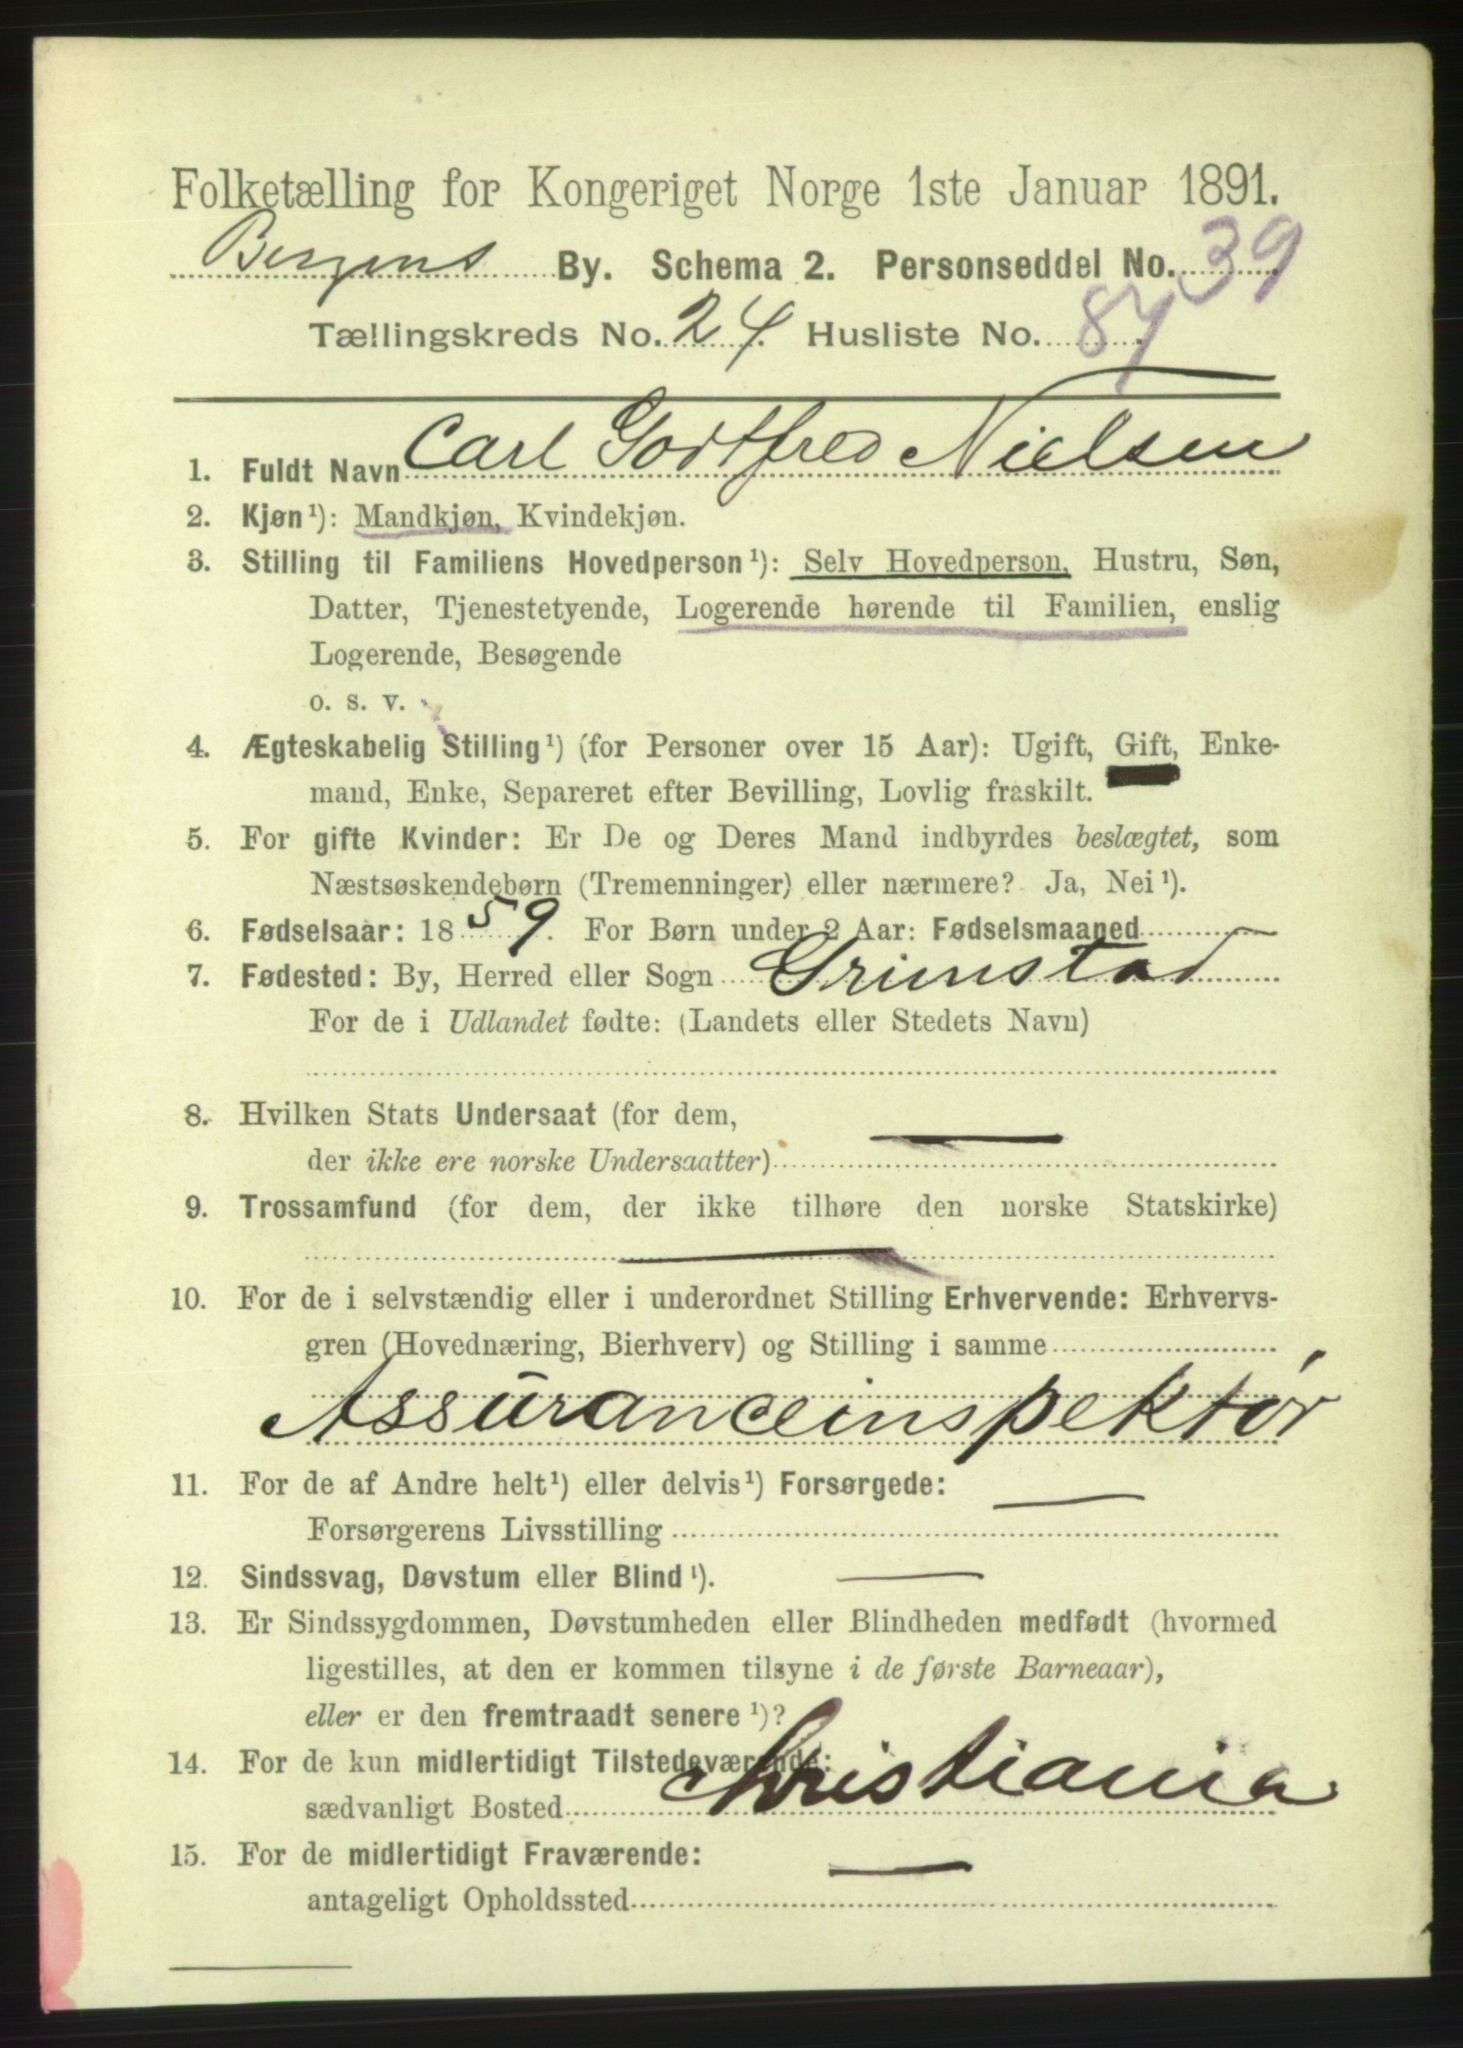 Folketælling for Kongeriget Norge 1ste Januar 1891.
Bergens By. Schema 2. Personseddel No. 39
Tællingskreds No. 24. Husliste No. 84
1. Fuldt Navn Carl Godtfred Nielsen
2. Kjøn¹): Mandkjøn, Kvindekjøn.
3. Stilling til Familiens Hovedperson¹): Selv Hovedperson, Hustru, Søn,
Datter, Tjenestetyende, Logerende hørende til Familien, enslig
Logerende, Besøgende
o. s. v.
4. Ægteskabelig Stilling¹) (for Personer over 15 Aar): Ugift, Gift, Enke-
mand, Enke, Separeret efter Bevilling, Lovlig fraskilt.
5. For gifte Kvinder: Er De og Deres Mand indbyrdes beslægtet, som
Næstsøskendebørn (Tremenninger) eller nærmere? Ja, Nei¹).
6. Fødselsaar: 1859. For Børn under 2 Aar: Fødselsmaaned
7. Fødested: By, Herred eller Sogn Grimstad
For de i Udlandet fødte: (Landets eller Stedets Navn)
8. Hvilken Stats Undersaat (for dem,
der ikke ere norske Undersaatter)
9. Trossamfund (for dem, der ikke tilhøre den norske Statskirke)
10. For de i selvstændig eller i underordnet Stilling Erhvervende: Erhvervs-
gren (Hovednæring, Bierhverv) og Stilling i samme
Assuranceinspektør
11. For de af Andre helt¹) eller delvis¹) Forsørgede:
Forsørgerens Livsstilling
12. Sindssvag, Døvstum eller Blind¹).
13. Er Sindssygdommen, Døvstumheden eller Blindheden medfødt (hvormed
ligestilles, at den er kommen tilsyne i de første Barneaar),
eller er den fremtraadt senere¹)?
14. For de kun midlertidigt Tilstedeværende:
sædvanligt Bosted Christiania
15. For de midlertidigt Fraværende:
antageligt Opholdssted